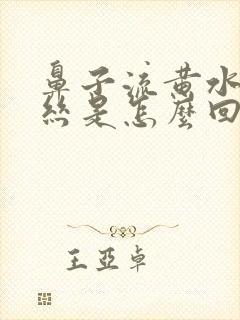 鼻子流黄水
絲是怎麼回
王亞卓